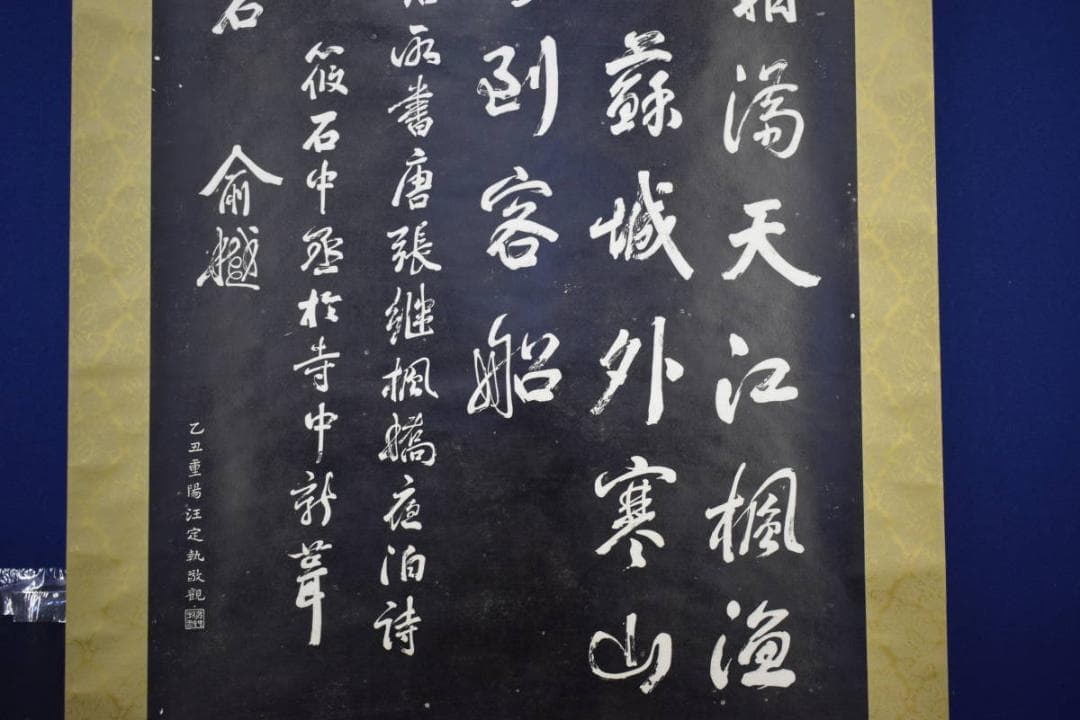 滿天江楓漁
蘇城外寒山
到客船
所書唐張繼楓橋夜泊詩
筱石中丞於寺中新葺
石
俞樾
乙丑重陽汪定執敬觀